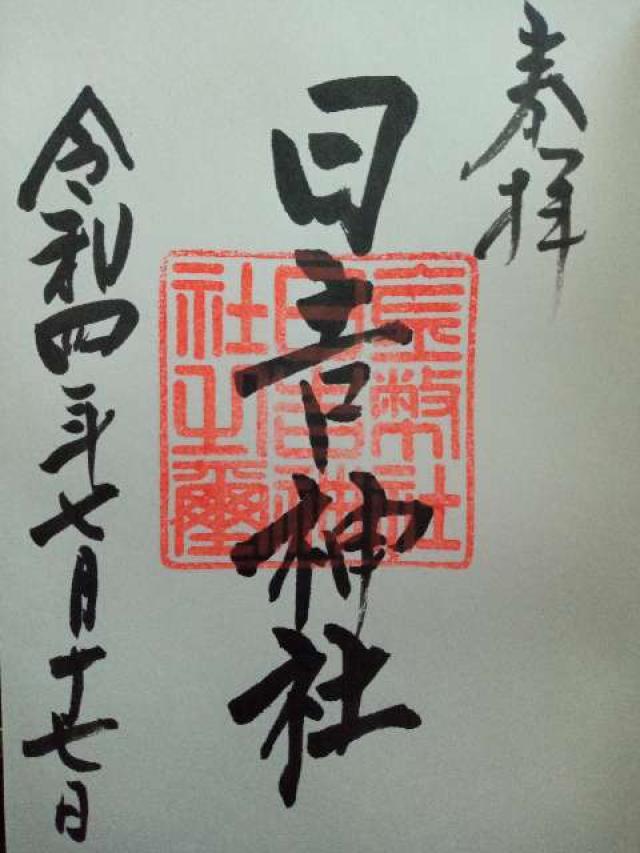 奉拝
日吉神社
国幣社
日吉神
社之璽
令和四年七月十七日